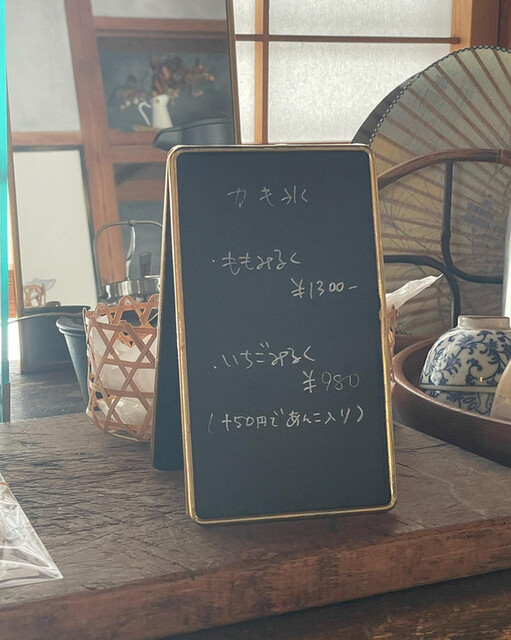 かき氷
・ももみるく
¥1300-
・いちごみるく
¥980
(+50円であんこ入り)